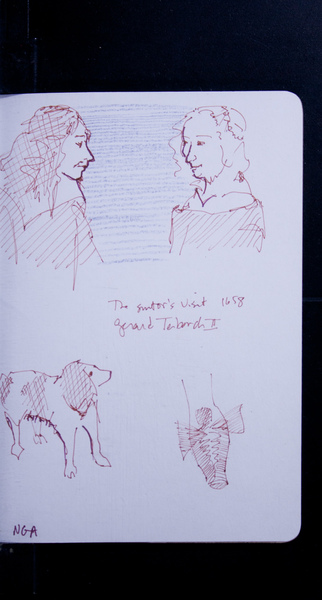 The suitor's Visit 1658
Gerard Terborch II
NGA